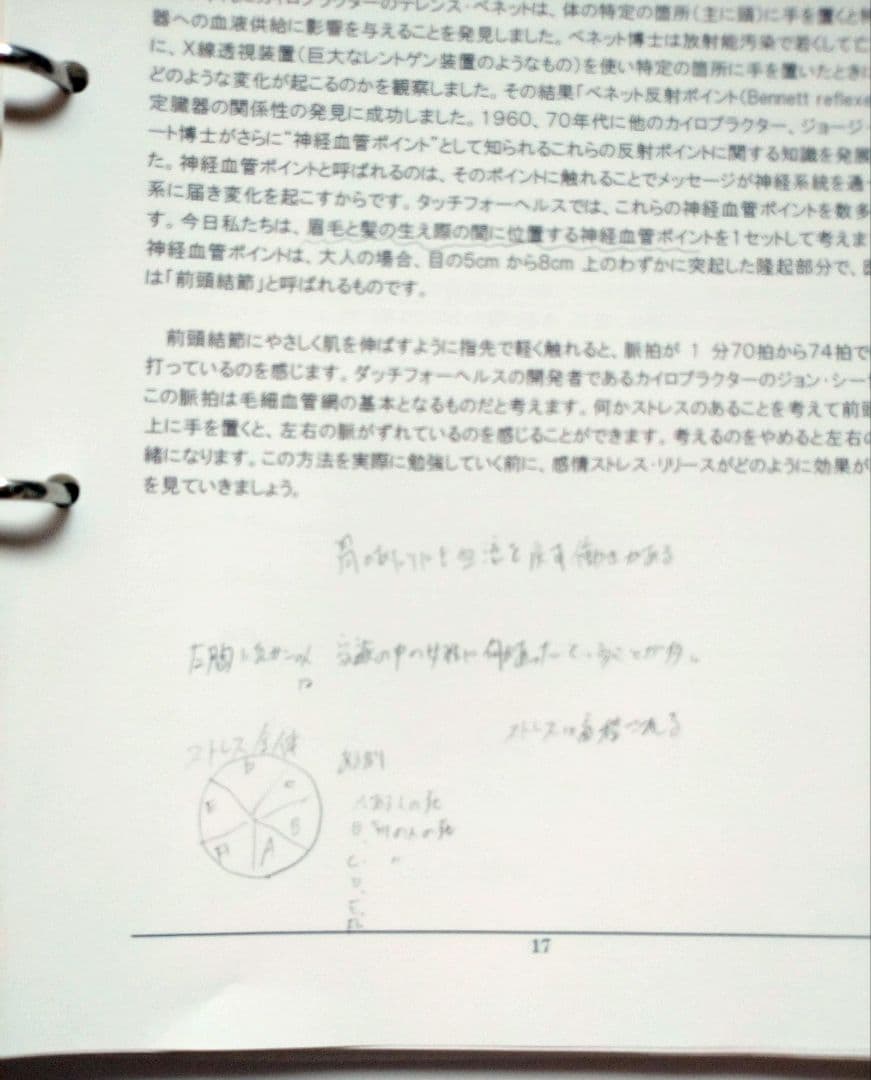 カイロプラクターのテレンス・ベネットは、体の特定の箇所(主に頭)に手を置くと
器への血液供給に影響を与えることを発見しました。ベネット博士は放射能汚染で若くして亡
に、X線透視装置(巨大なレントゲン装置のようなもの)を使い特定の箇所に手を置いたときに
どのような変化が起こるのかを観察しました。その結果「ベネット反射ポイント(Bennett reflexe
定臓器の関係性の発見に成功しました。1960、70年代に他のカイロプラクター、ジョージ・
ート博士がさらに“神経血管ポイント”として知られるこれらの反射ポイントに関する知識を発展
た。神経血管ポイントと呼ばれるのは、そのポイントに触れることでメッセージが神経系統を通
系に届き変化を起こすからです。タッチフォーヘルスでは、これらの神経血管ポイントを数多
す。今日私たちは、眉毛と髪の生え際の間に位置する神経血管ポイントを1セットして考えま
神経血管ポイントは、大人の場合、目の5cmから8cm 上のわずかに突起した隆起部分で、
は「前頭結節」と呼ばれるものです。
前頭結節にやさしく肌を伸ばすように指先で軽く触れると、脈拍が 1 分70拍から74拍で
打っているのを感じます。ダッチフォーヘルスの開発者であるカイロプラクターのジョン・シー
この脈拍は毛細血管網の基本となるものだと考えます。何かストレスのあることを考えて前頭
上に手を置くと、左右の脈がずれているのを感じることができます。考えるのをやめると左右の
緒になります。この方法を実際に勉強していく前に、感情ストレス・リリースがどのように効果が
を見ていきましょう。
を戻す働きがある
家族の中の
ストレスは蓄積される
ストレス全体
D
E C
F A B
A の死
B. 別の人の死
C. 〃
D.
E.
F.
17